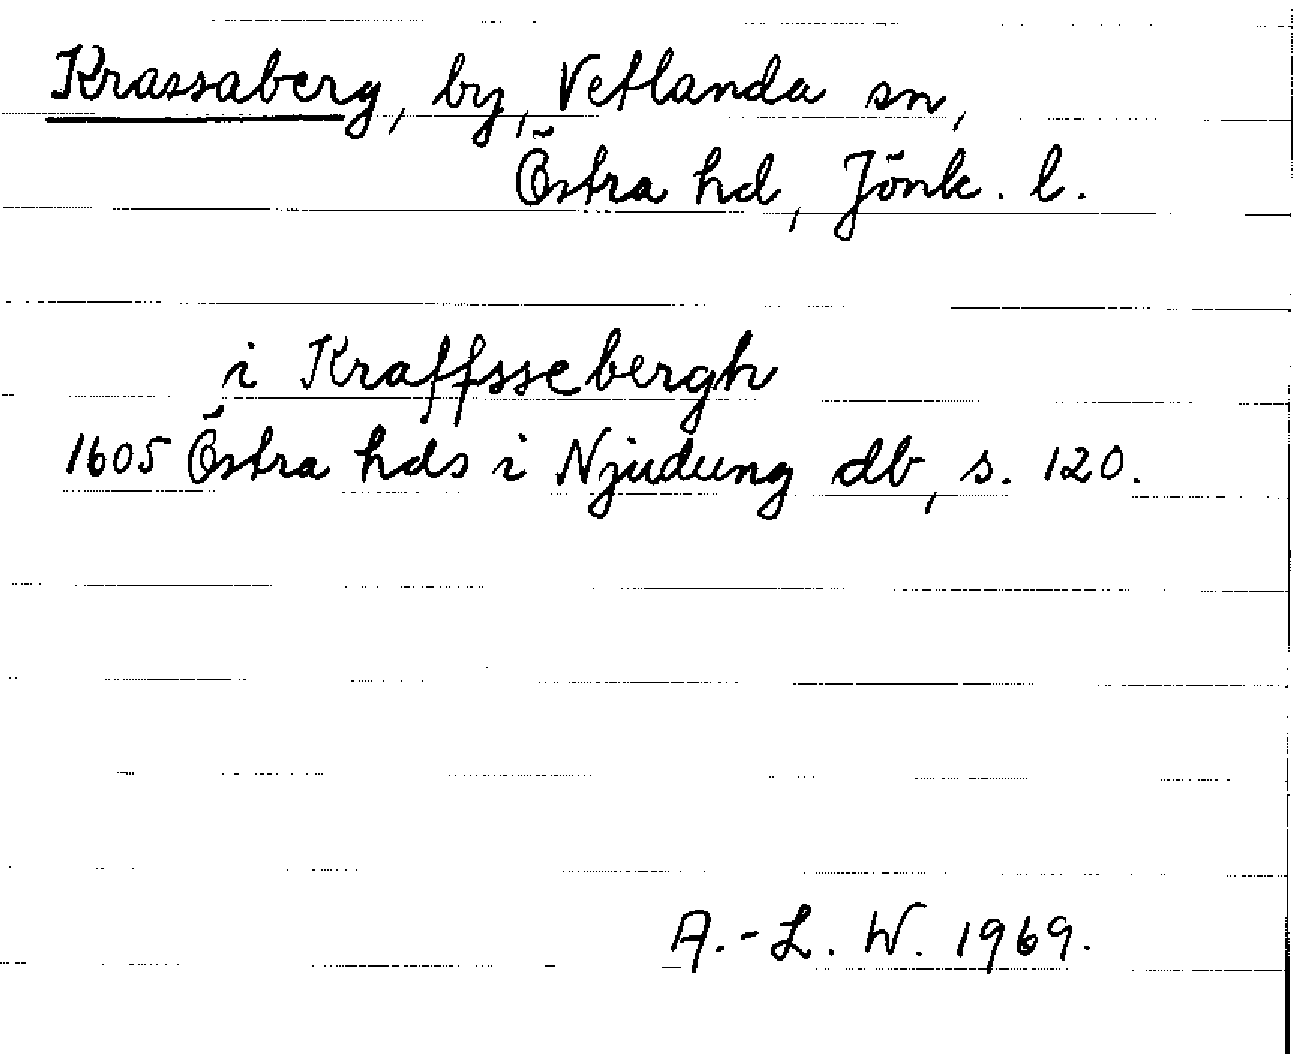 Krassaberg, by, Vetlanda sn,
Östra hd, Jönk. l.
i Kraffssebergh
1605 Östra hds i Njudung db, s. 120.
A.-L. W. 1969.